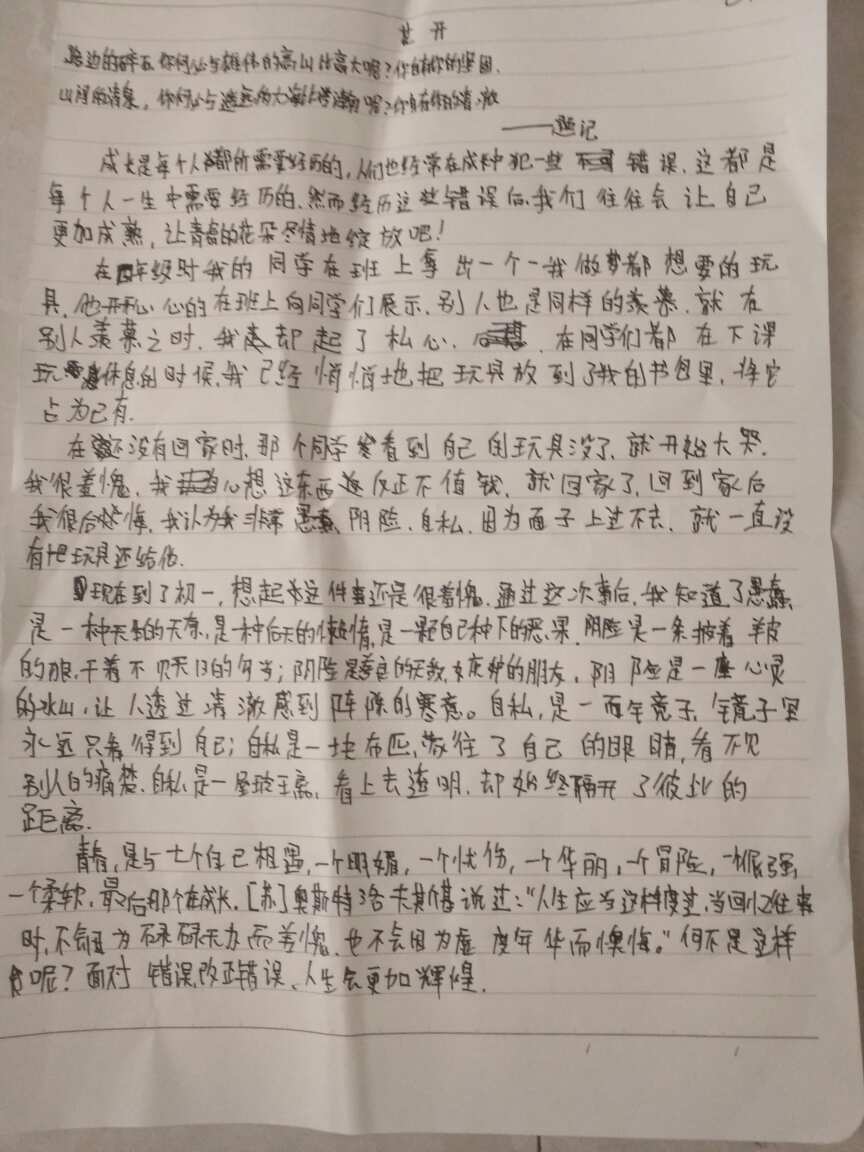 花开
路边的碎石,你何必与雄伟的高山比高大呢?你自有你的坚固.
山间的清泉,你何必与遥远的大海比浩瀚呢?你自有你的清澈
——题记
成长是每个人都所需要经历的,人们也经常在成长中犯一些错误,这都是
每个人一生中需要经历的.然而经历这些错误后,我们往往会让自己
更加成熟,让青春的花朵尽情地绽放吧!
在四年级时我的同学在班上拿出一个一我做梦都想要的玩
具,他开心心的在班上向同学们展示.别人也是同样的羡慕.就在
别人羡慕之时.我却起了私心.在同学们都在下课
玩休息的时候,我已经悄悄地把玩具放到了我的书包里,将它
占为己有.
在还没有回家时.那个同学看到自己的玩具没了.就开始大哭.
我很羞愧.我心想这东西反正不值钱.就回家了.回到家后
我很后悔,我认为我非常愚蠢.阴险.自私.因为面子上过不去.就一直没
有把玩具还给他.
现在到了初一,想起这件事还是很羞愧.通过这次事后,我知道了愚蠢
是一种天生的天存,是一种后天的懒惰,是一颗自己种下的恶果.阴险是一条披着羊皮
的狼,干着不见天日的勾当;阴险是善良的天敌,嫉妒的朋友,阴险是一座心灵
的冰山,让人透过清澈感到阵阵的寒意。自私,是一面镜子,镜子里
永远只看得到自己;自私是一块布匹,蒙住了自己的眼睛,看不见
别人的痛楚.自私是一层玻璃,看上去透明.却始终隔开了彼此的
距离.
青春,是与七个自己相遇,一个明媚,一个忧伤,一个华丽,一个冒险,一个倔强,
一个柔软,最后那个在成长.[苏]奥斯特洛夫斯基说过:“人生应当这样度过,当回忆往事
时,不会因为碌碌无为而羞愧.也不会因为虚度年华而懊悔。”何不是这样
呢?面对错误,改正错误、人生会更加辉煌.